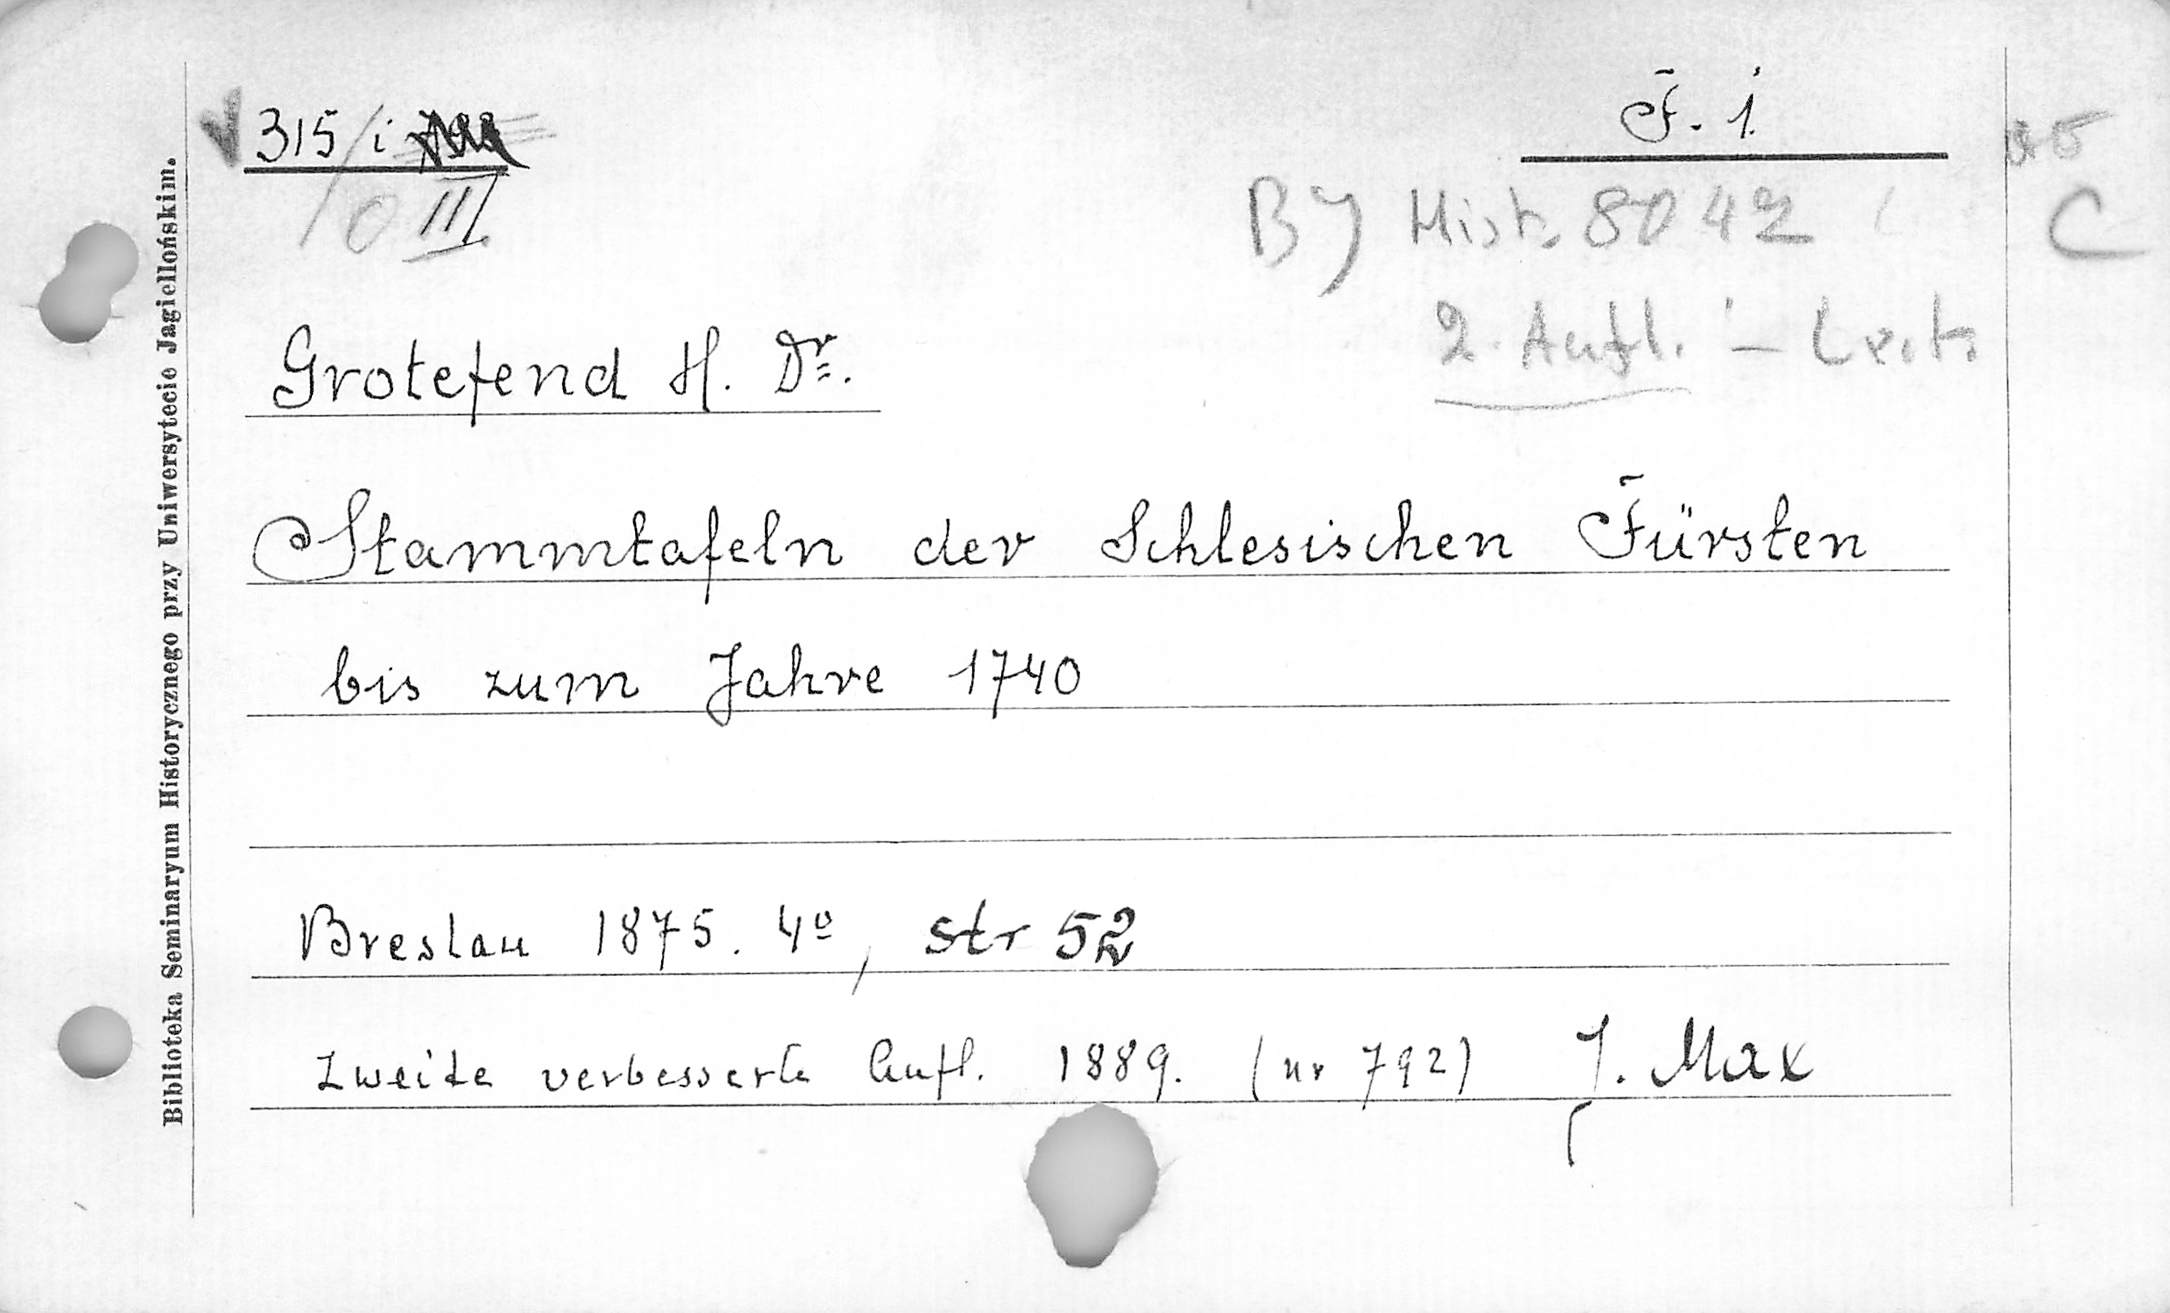 315/i
F. 1.
III
BJ Hist. 8042
C
2 Aufl. -
Grotefend H. Dr.
Stammtafeln der Schlesischen Fürsten
bis zum Jahre 1740
Breslau 1875. 4º, str 52
Zweite verbesserte Aufl. 1889. (nr 792) J. Max
Biblioteka Seminaryum Historycznego przy Uniwersytecie Jagiellońskim.